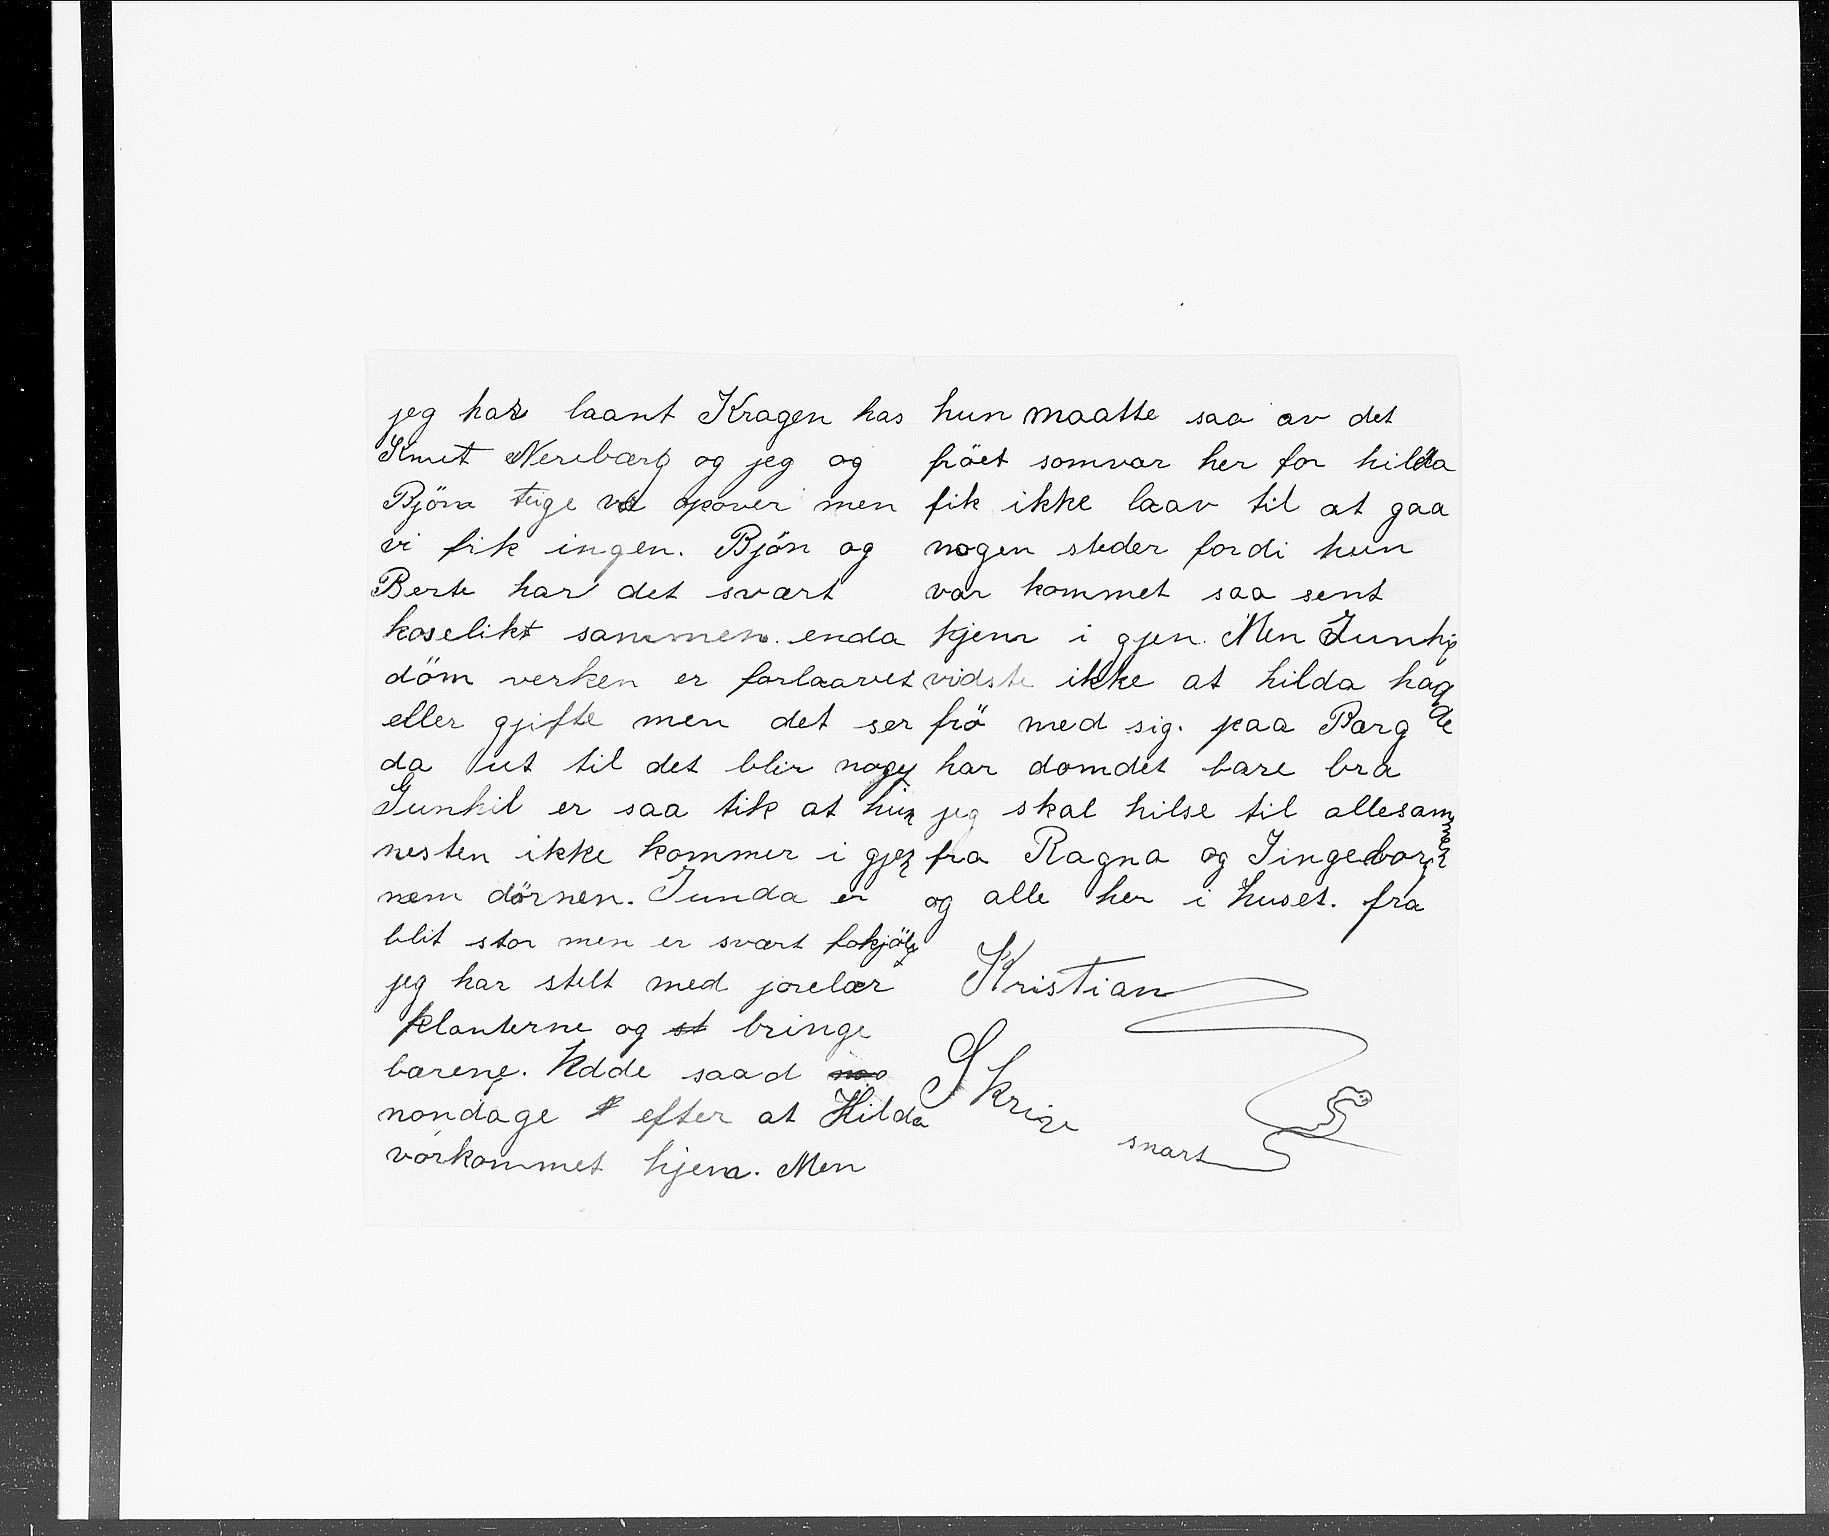 jeg har laant Kragen has
Knut Nerebærg og jeg og
Björn teige va opover men
vi fik ingen. Bjön og
Berte har det svært
koselikt sammen. enda
döm verken er forlaavet
eller gjifte men det ser
da ut til det blir noge
Gunhil er saa tik at hun
nesten ikke kommer i gjen
nem dørnen. Gunda er
blit stor men er svært fokjölet
jeg har stelt med jorelær
planterne og st bringe
bærene. Udde saad
nondage efter at Hilda
vórkommet hjem. Men
hun maatte saa av det
fröet somvar her for hilda
fik ikke laav til at gaa
nogen steder fordi hun
var kommet saa sent
hjem i gjen. Men Gunhil
vidste ikke at hilda hagde
frö med sig. paa Barg
har domdet bare bra
jeg skal hilse til allesammen
fra Ragna og Jingeborg
og alle her i huset. fra
Kristian
Skriv snart